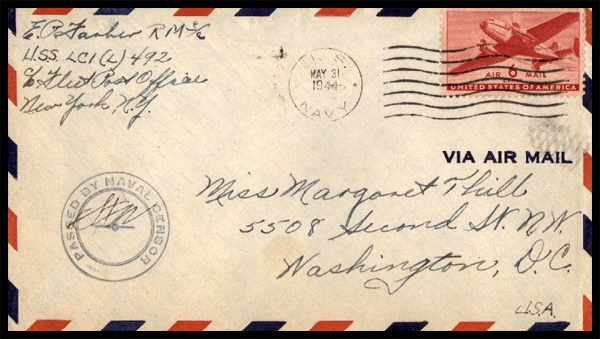 E.P. Farber RM 3/c
U.S.S. LCI (L) 492
c/o Fleet Post Office
New York, N.Y.
U.S.
MAY 31
1944
NAVY
AIR 6 MAIL
UNITED STATES OF AMERICA
VIA AIR MAIL
PASSED BY NAVAL CENSOR
Miss Margaret Thill
5508 Second St. N.W.
Washington, D.C.
U.S.A.